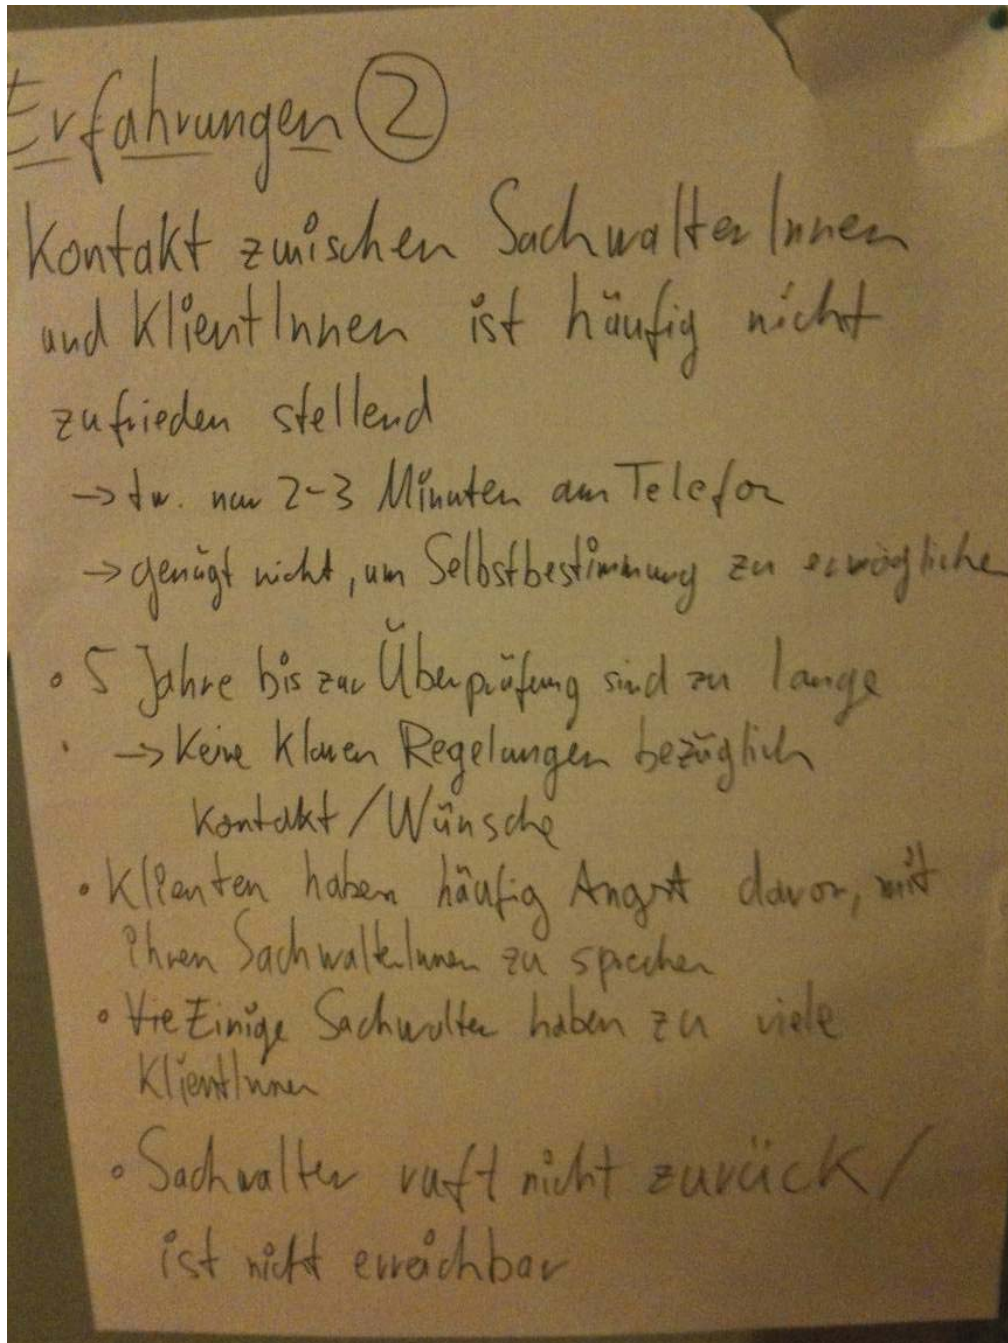 Erfahrungen ②
Kontakt zwischen SachwalterInnen
und KlientInnen ist häufig nicht
zufrieden stellend
→ tw. nur 2-3 Minuten am Telefon
→ genügt nicht, um Selbstbestimmung zu ermögliche
• 5 Jahre bis zur Überprüfung sind zu lange
• → Keine klaren Regelungen bezüglich
Kontakt/Wünsche
• Klienten haben häufig Angst davor, mit
ihren SachwalterInnen zu sprechen
• Vie Einige Sachwalter haben zu viele
KlientInnen
• Sachwalter ruft nicht zurück/
ist nicht erreichbar